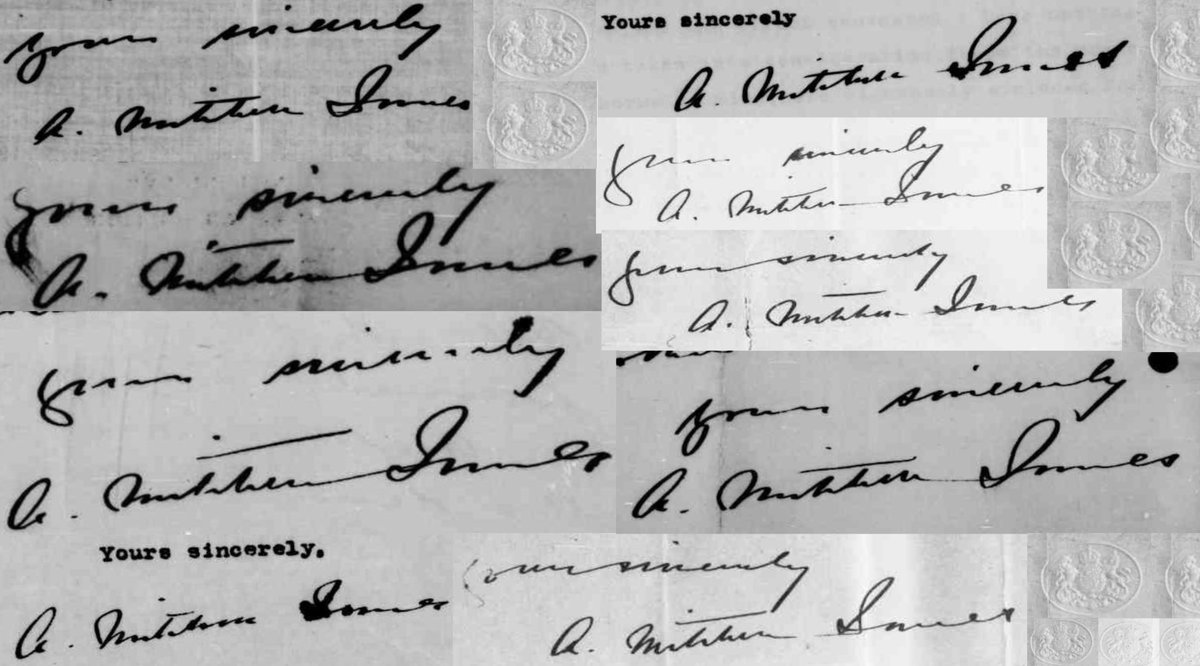 Yours sincerely
A. Mitchell Innes
Yours sincerely
A. Mitchell Innes
Yours sincerely
A. Mitchell Innes
Yours sincerely
A. Mitchell Innes
Yours sincerely
A. Mitchell Innes
Yours sincerely
A. Mitchell Innes
Yours sincerely
A. Mitchell Innes
Yours sincerely,
A. Mitchell Innes
Yours sincerely
A. Mitchell Innes